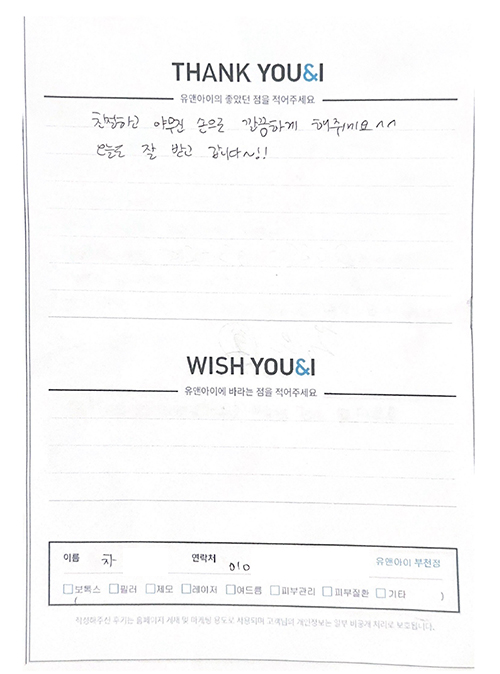 THANK YOU&I
유앤아이의 좋았던 점을 적어주세요
친절하고 야무진 손으로 깔끔하게 해줘네요^^
오늘도 잘 받고 갑니다~!!
WISH YOU&I
유앤아이에 바라는 점을 적어주세요
이름 차 연락처 010 유앤아이 부천점
보톡스 필러 제모 레이저 여드름 피부관리 피부질환 기타
( )
작성해주신 후기는 홈페이지 게재 및 마케팅 용도로 사용되며 고객님의 개인정보는 일부 비공개 처리로 보호됩니다.